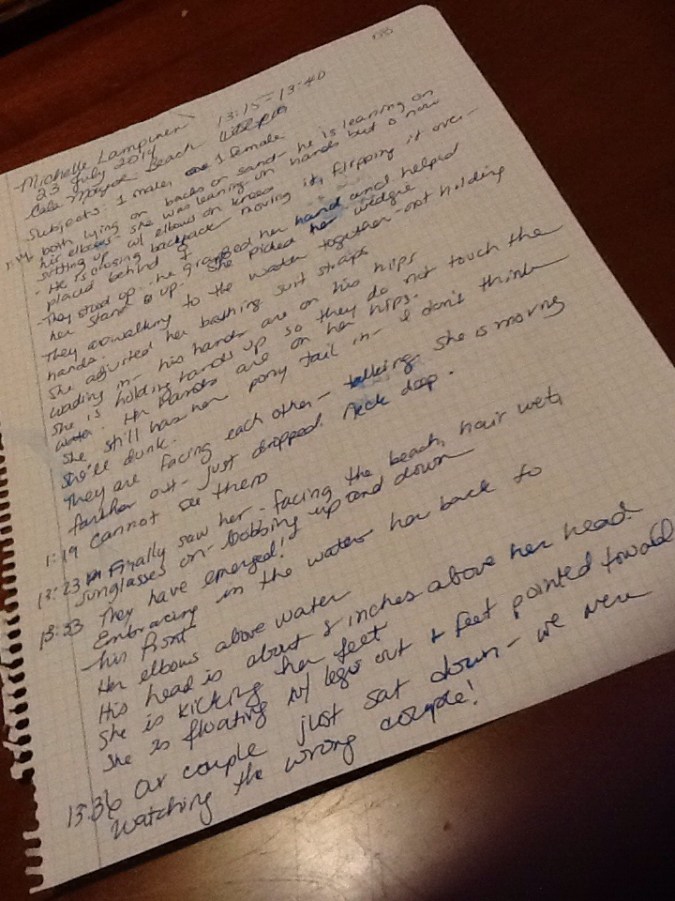 Michelle Lampinen 13:15-13:40
23 July 2014
Cala Mayor Beach
Subjects: 1 male, 1 female
both lying on backs on sand - he is leaning on
his elbows - she was leaning on hands but is now
sitting up w/ elbows on knees
- He is closing backpack moving it, flipping it over -
placed behind
- They stood up - he grabbed her hand and helped
her stand up. She picked her wedgie
They walking to the water together - not holding
hands.
She adjusted her bathing suit straps
wading in - his hands are on his hips
She is holding hands up so they do not touch the
water. Her hands are on her hips.
She still has her pony tail in - I don't think
she'll dunk.
They are facing each other - talking. She is moving
farther out - just dropped. Neck deep.
1:19 Cannot see them
13:23 Finally saw her - facing the beach, hair wet,
sunglasses on - bobbing up and down
13:33 They have emerged!
Embracing in the water her back to
his front
Her elbows above water
His head is about 8 inches above her head.
She is kicking her feet
She is floating w/ legs out & feet pointed toward
13:36 Our couple just sat down - we were
watching the wrong couple!